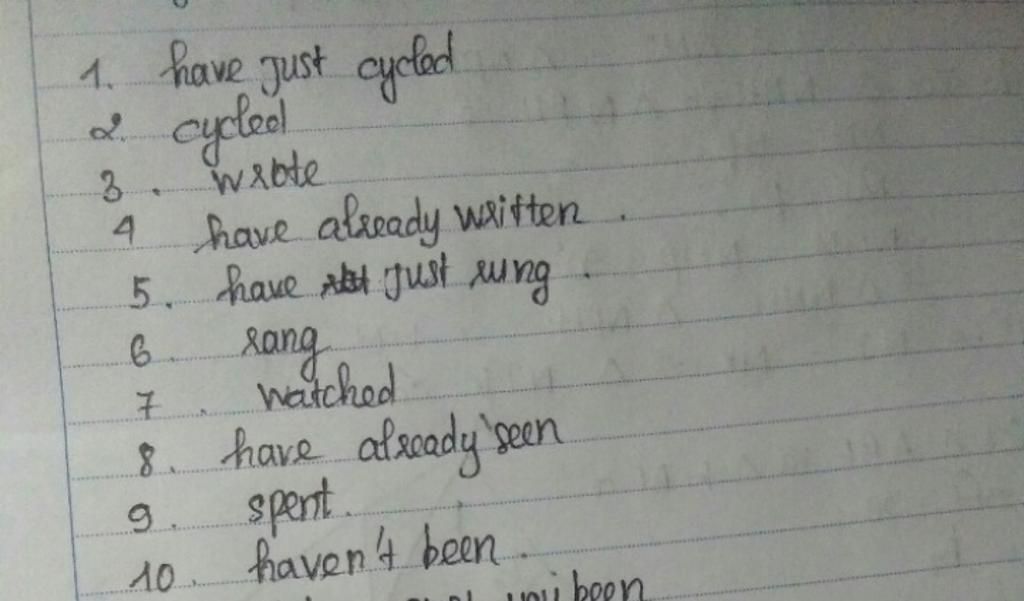 1. have just cycled
2. cycled
3. wrote
4 have already written.
5. have just rung.
6. rang
7. watched
8. have already seen
9. spent.
10. haven't been.
you been